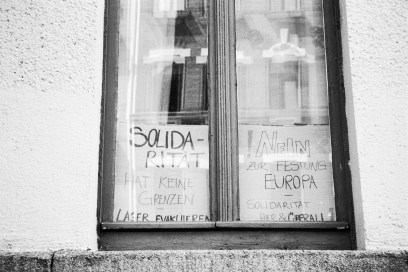 SOLIDA-
RITÄT
HAT KEINE
GRENZEN
LAGER EVAKUIEREN
NEIN
ZUR FESTUNG
EUROPA
SOLIDARITÄT
HIER & ÜBERALL